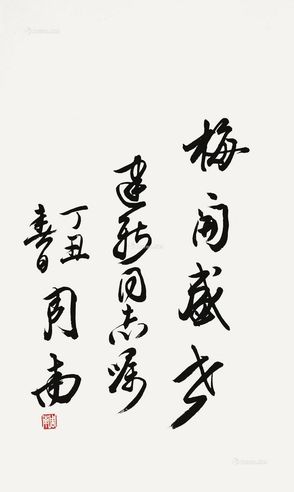 梅開盛世
建新同志嘱
丁丑
春日
周南